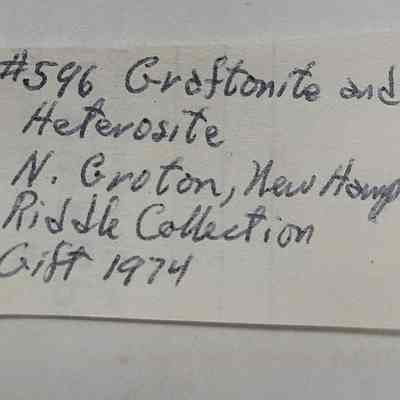 #596 Graftonite and
Heterosite
N. Groton, New Hamp
Riddle Collection
Gift 1974